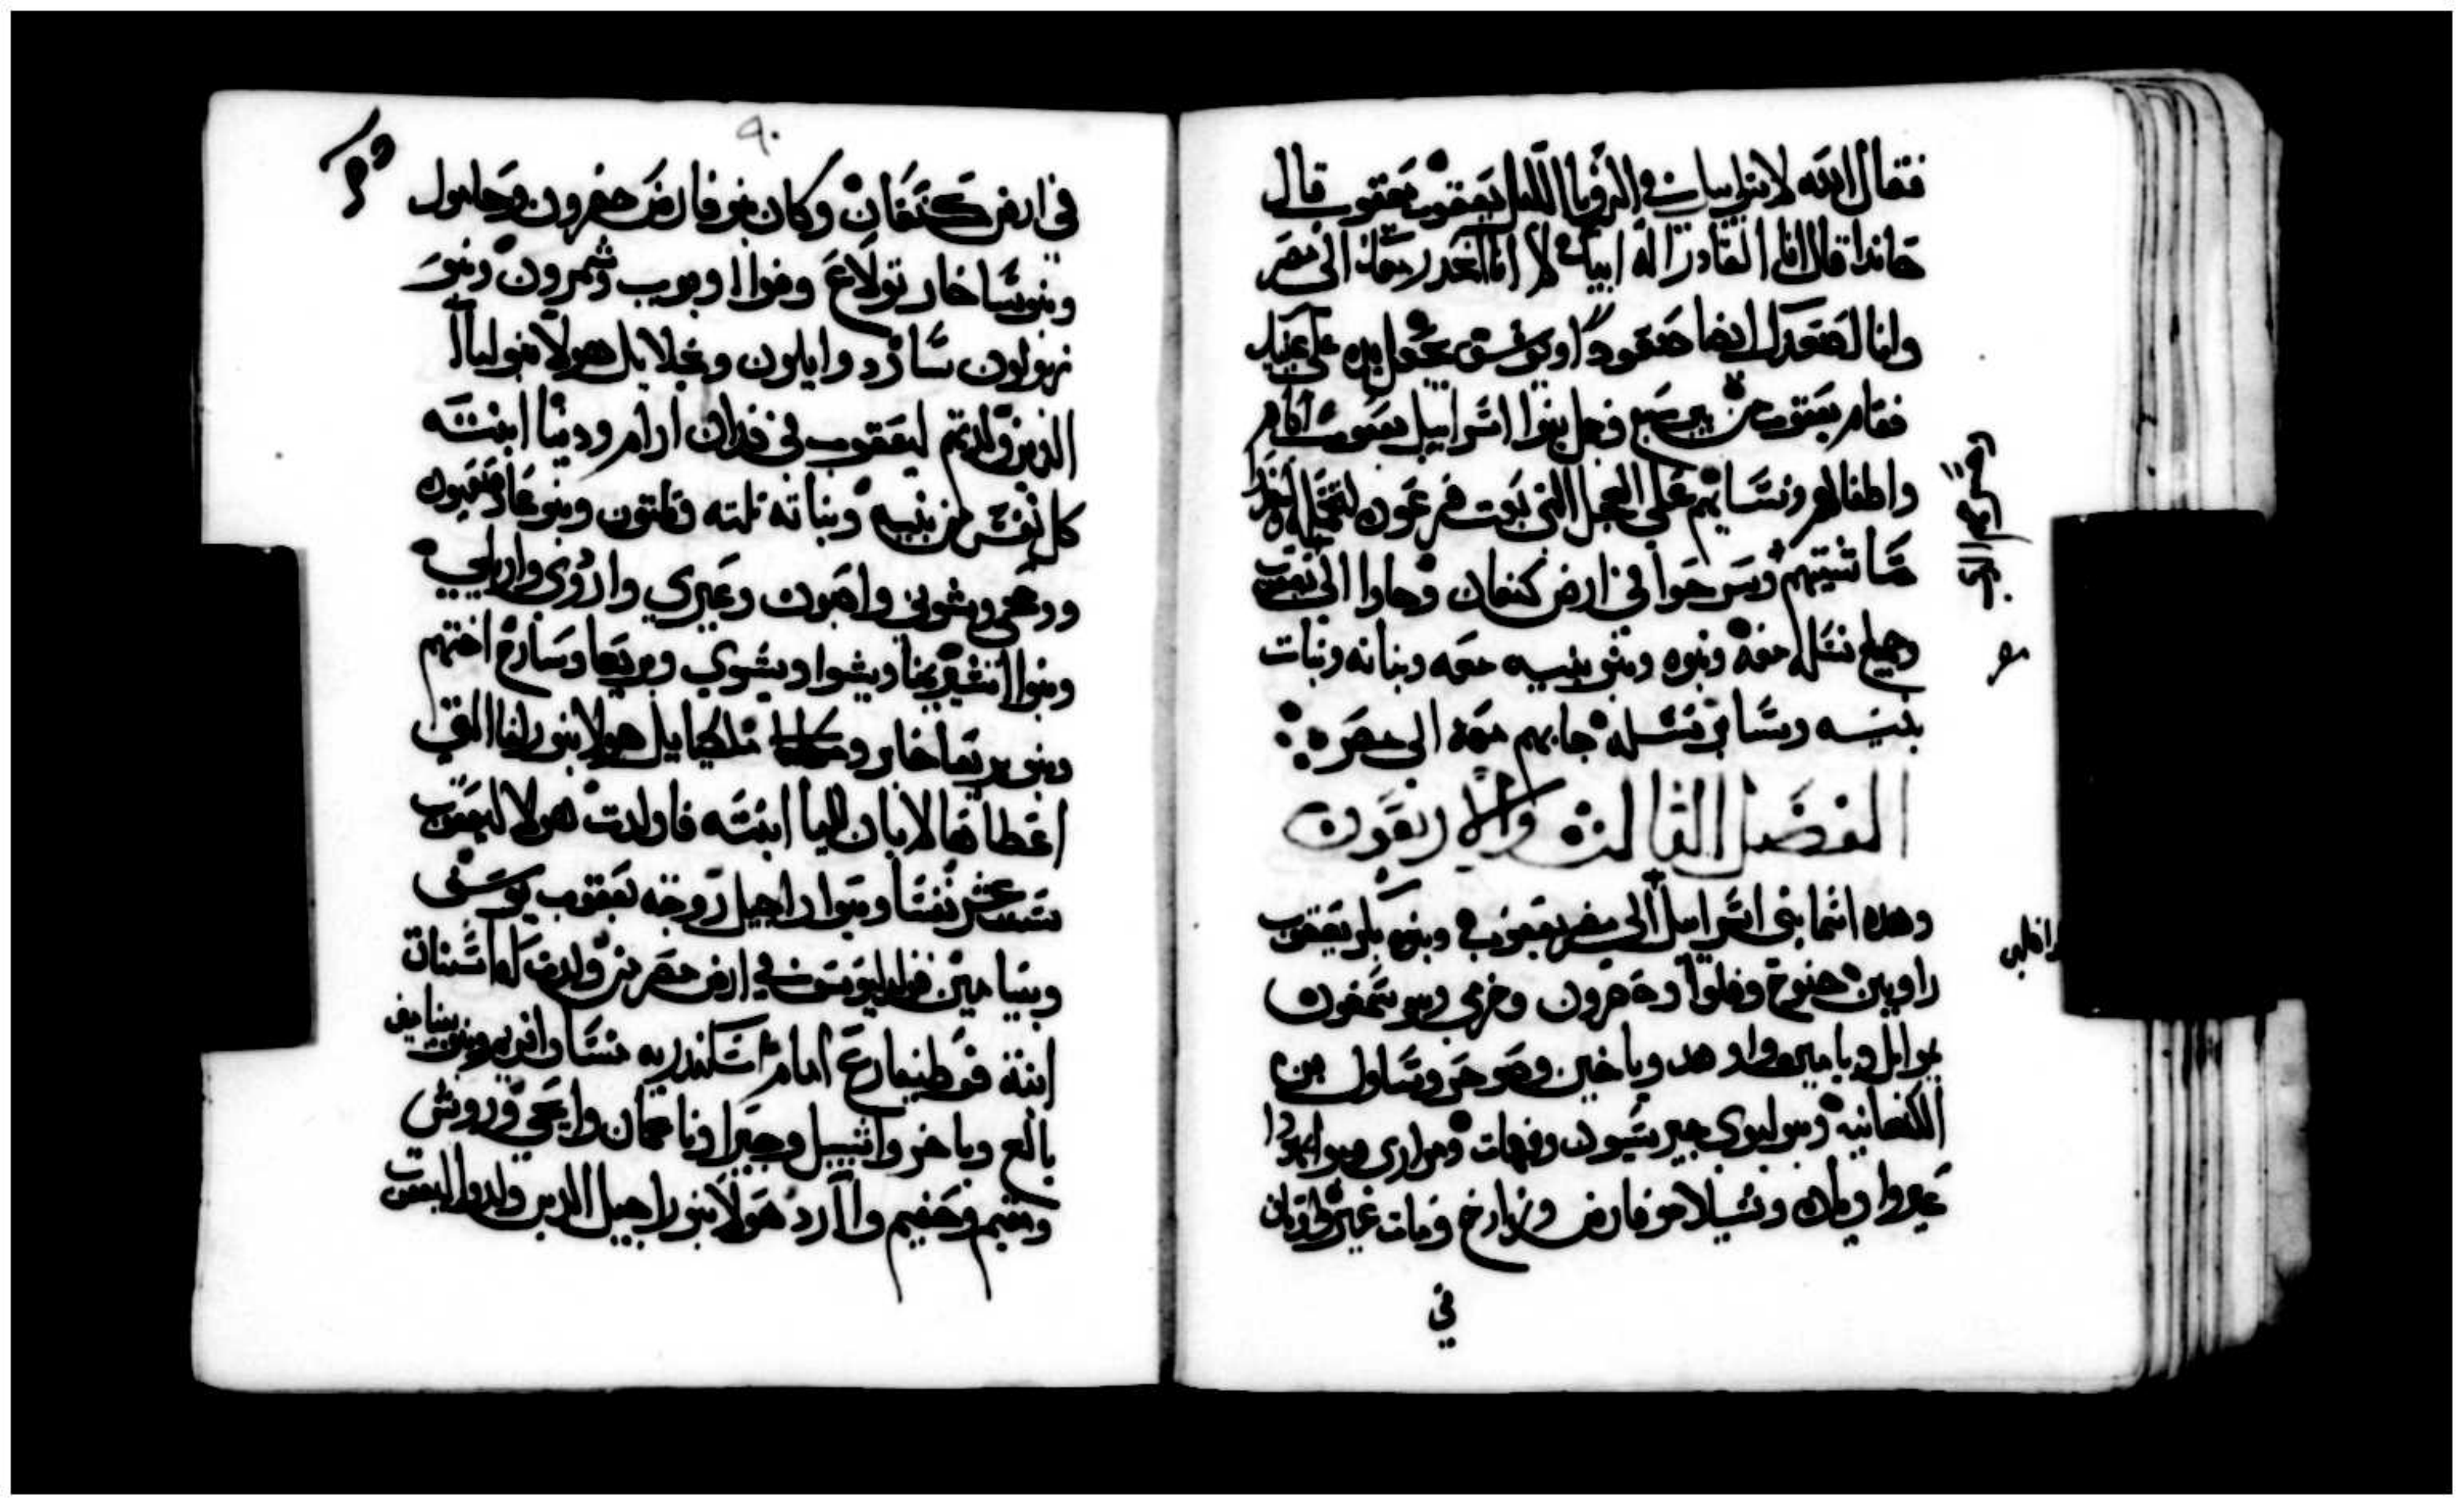 فقال الله لاسرايل في الرويا الليل يعقوب يعقوب قال
هاندا قال انا القادر اله ابيك لا الى مصر
وانا اصعدك ايضا صعودا ويوسف يجعل يده على عينيك
فقام يعقوب من بير سبع فحمل بنوا اسراييل يعقوب اباهم
واطفالهم ونسايهم على العجل التي بعت فرعون لتحمله
ماشيتهم وسرحوا في ارض كنعان وجاوا الى
وجميع نسله معه وبنوه وبنو بنيه معه وبناته وبنات
بنيه وساير نسله جابهم معه الى مصر
الفصل الثالث والاربعون
وهده اسما بني اسراييل الى مصر يعقوب وبنوه بكر يعقوب
راوبين حنوخ وفلوا وحصرون وخرمي وبنو شمعون
يوايل ويامين واوهد وياخين وصوحر وساول بن
الكنعانيه وبنو ليوي جيرسون وقهات ومراري وبنو يهودا
عير واونان وشيلا وفارض وزارخ ومات عير واونان
في
٩٠
في ارض كنعان وكان بنو فارض حصرون وحامول
وبنو يساخار تولاع وفوا ويوب وشمرون وبنو
زبولون سارد وايلون ونحلايل هولا بنو ليا
الذين ولدتهم ليعقوب في فدان ارام ودينا ابنته
كل نفس من بنيه وبناته تلته وتلتون وبنو عاد صفيون
وحجي وشوني واصبون وعيري وارودي واريلي
وبنوا اشير يمنا ويشوا ويشوي وبريعا وسارح اختهم
وبنو بريعا خابر وملكيايل هولا بنو زلفا التي
اعطاها لابان لليا ابنته فاولدت هولا ليعقوب
ستت عشر نفسا وبنوا راحيل زوجة يعقوب يوسف
وبنيامين فولد ليوسف في ارض مصر من ولدت له اسنات
ابنة فوطيفارع امام اسكندريه منسا وافريم وبنو بنيامين
بالع وباخر واشبيل وجيرا وناعمان وايحي وروش
ومفيم وحفيم وارد هولا بنو راحيل الدين ولدوا ليعقوب